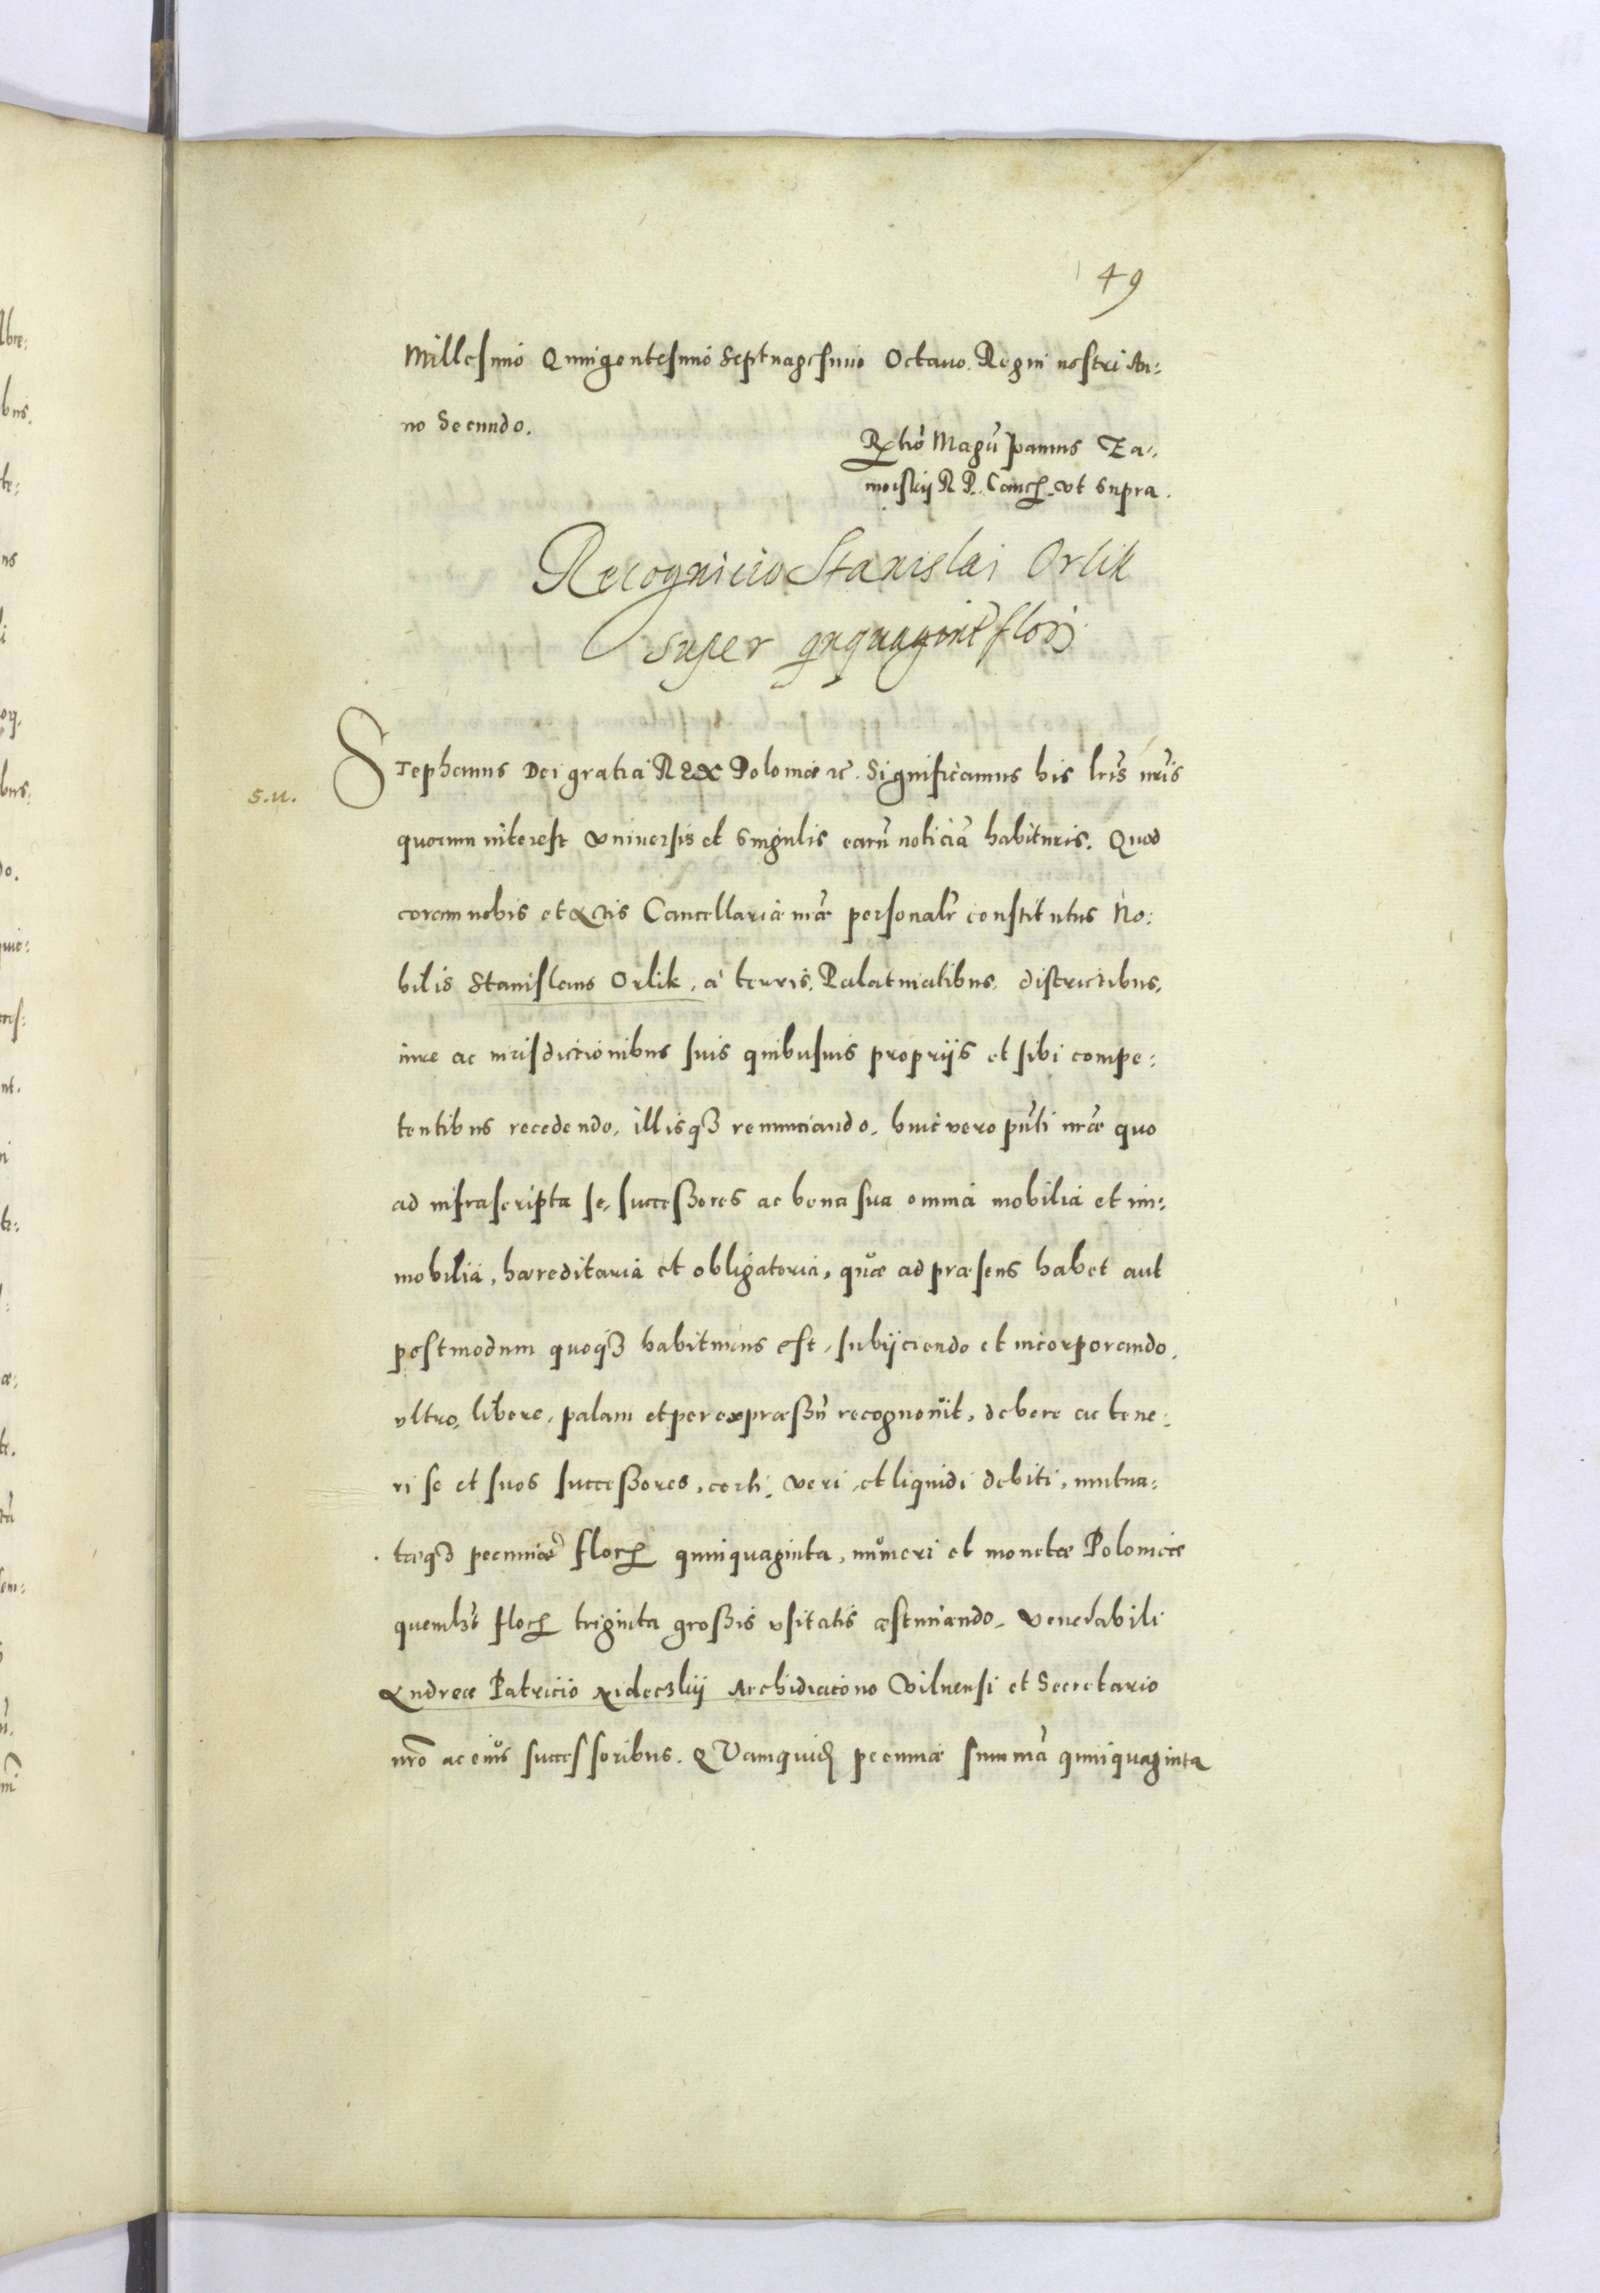 49
Millesimo Quingentesimo Septuagesimo Octauo. Regni nostri An:
no Secundo.
Rtio Magci Joannis Za:
moiskij R P. Canc. vt supra.
Recognicio Stanislai Orlik
super qnquagint flor
Stephanus Dei gratia REX Poloniæ rc. Significamus his lris nris
s.u.
quorum interest vniuersis et singulis earu noticia habituris. Quod
coram nobis et Actis Cancellariæ nræ personalr constitutus No:
bilis Stanislaus Orlik, a terris, Palatinatibus, districtibus,
iure ac iurisdictionibus suis quibusuis proprijs et sibi compe:
tentibus recedendo, illisq3 renunciando, huic vero pnti nræ quo
ad infrascripta se, successores ac bona sua omnia mobilia et im:
mobilia, hæreditaria et obligatoria, quæ ad præsens habet aut
postmodum quoq3 habiturus est, subijciendo et incorporando,
vltro, libere, palam et per expræssu recognouit, debere ac tene:
ri se et suos successores, certi, veri, et liquidi debiti, mutua:
tæq3 pecuniæ flor quinquaginta, numeri et monetæ Polonicæ
quemlbt flor triginta grossis vsitatis æstimando, Venerabili
Andreæ Patricio Nideczkij Archidiacono Vilnensi et Secretario
nro ac eius successoribus. QVamquid pecuniæ summa quinquaginta